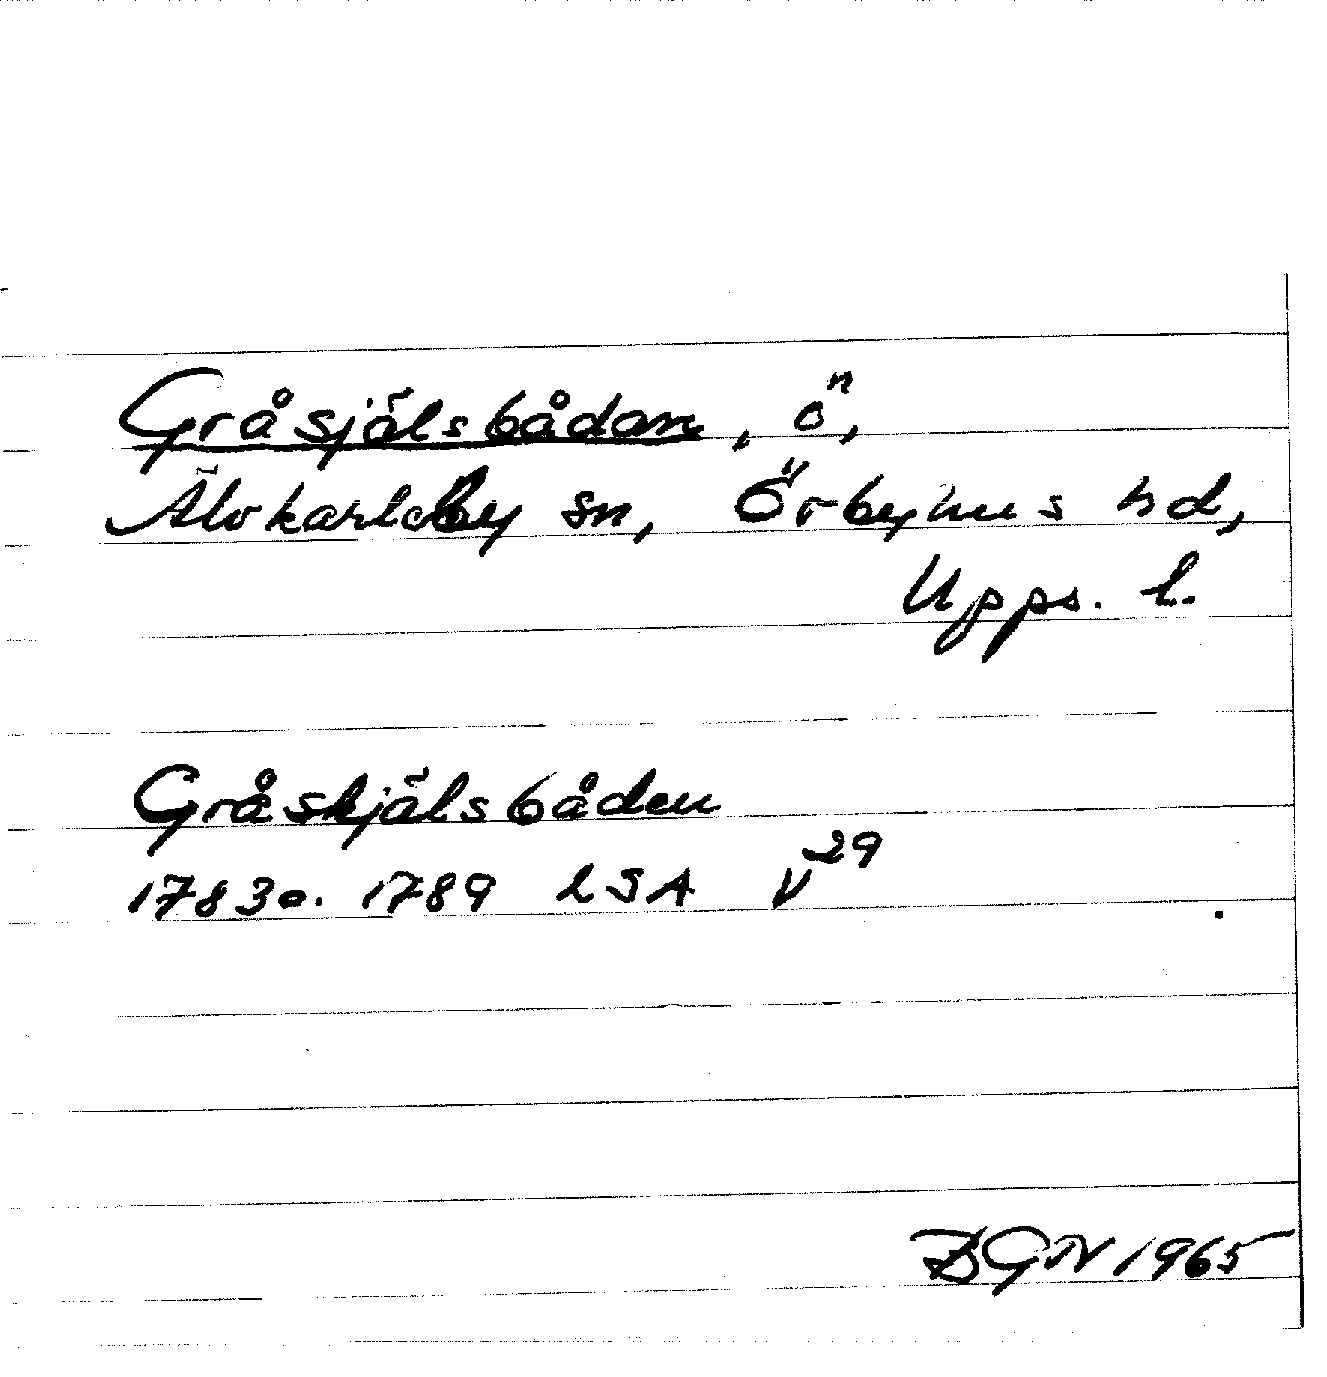 Gråsjälsbådan, ö,
Älvkarleby sn, Örbyhus hd,
Upps. l.
Gråskjälsbåden
1783 o. 1789 LSA V29
BGN 1965